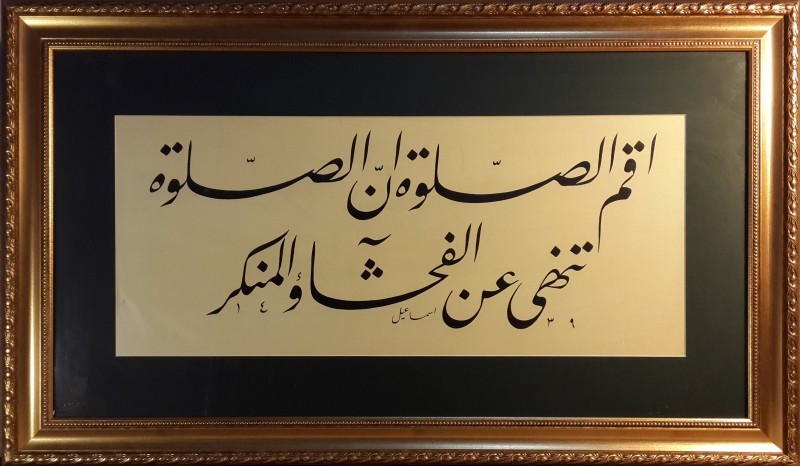 اقم الصّلوة انّ الصّلوة
تنهى عن الفحشآء والمنكر
اسماعیل
١٤٣٩